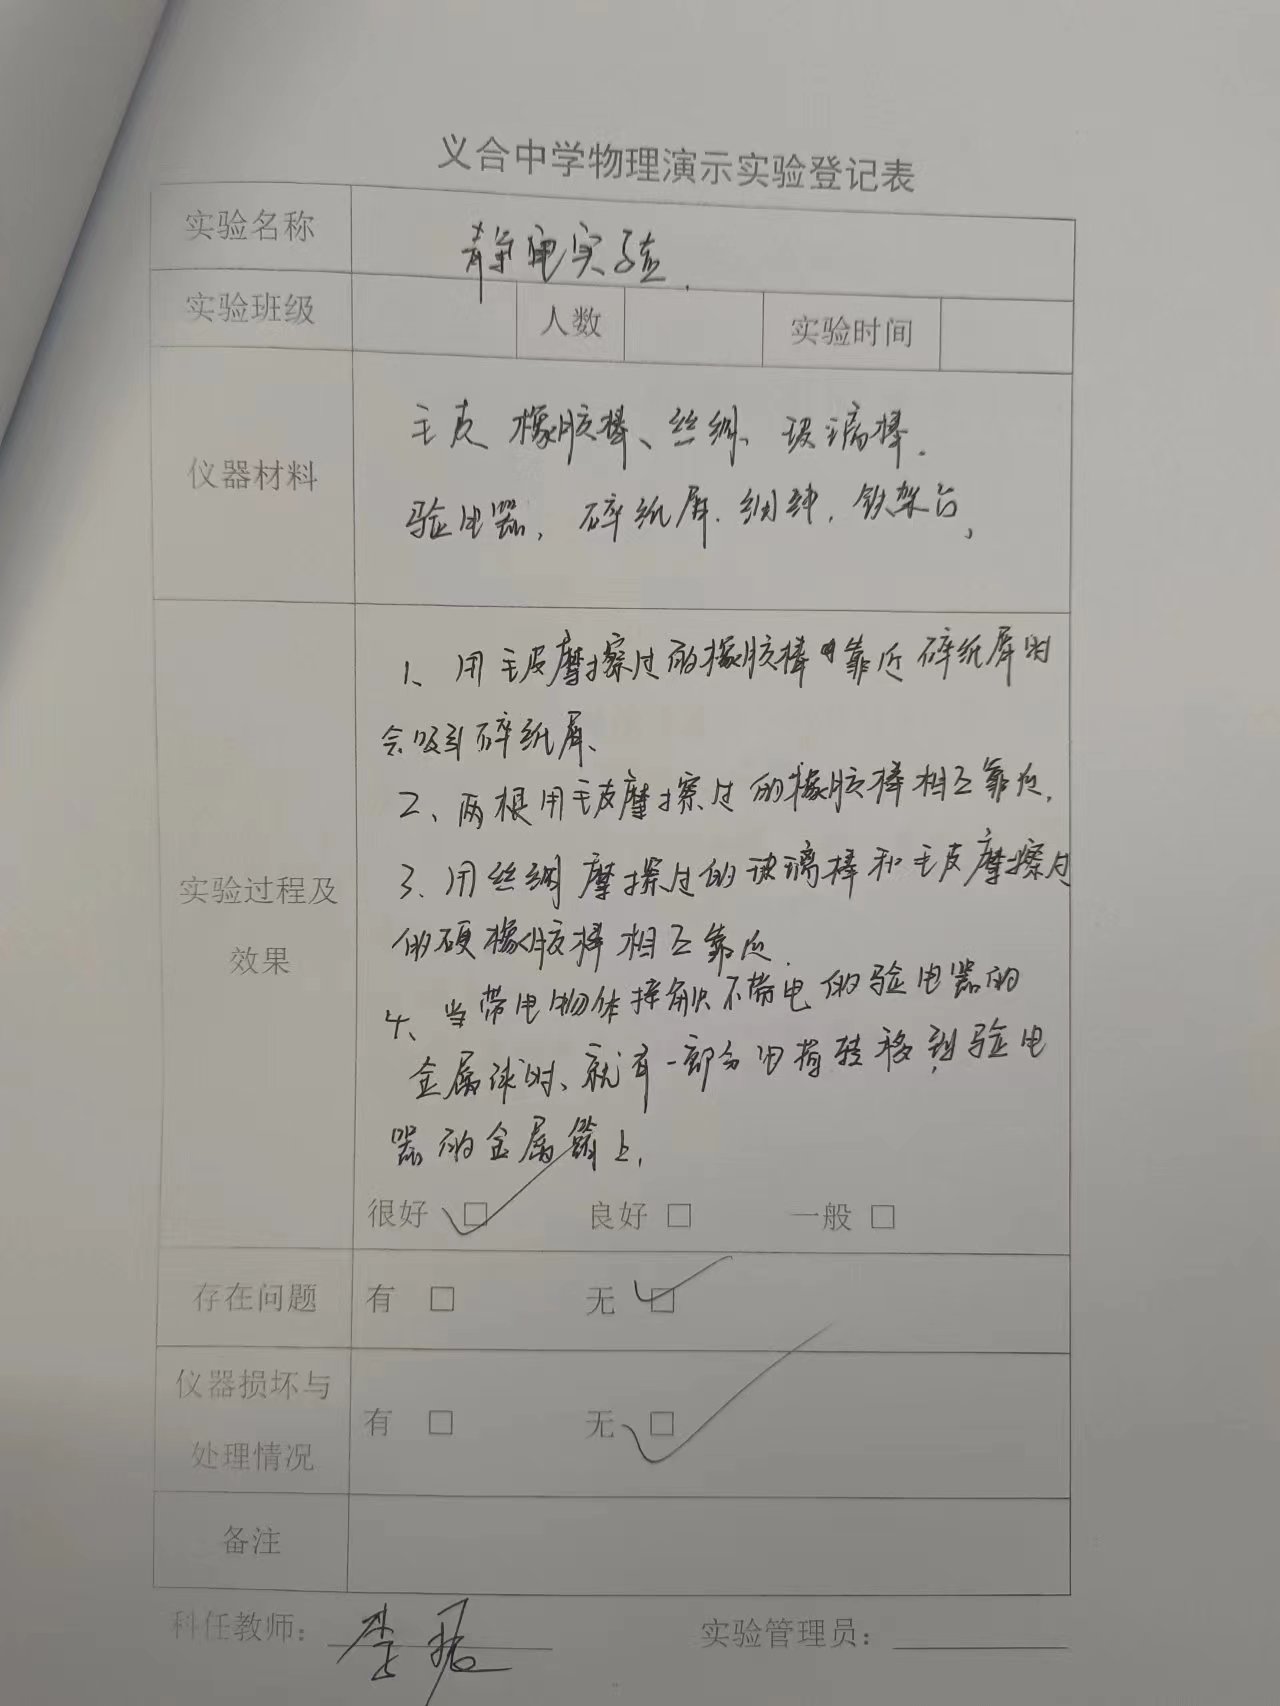 义合中学物理演示实验登记表
实验名称 静电实验.
实验班级 人数 实验时间
仪器材料
毛皮 橡胶棒、丝绸、玻璃棒.
验电器, 碎纸屑. 细绳, 铁架台,
实验过程及
效果
1、用毛皮摩擦过的橡胶棒靠近碎纸屑时
会吸引碎纸屑、
2、两根用毛皮摩擦过的橡胶棒相互靠近.
3、用丝绸摩擦过的玻璃棒和毛皮摩擦过
的硬橡胶棒相互靠近.
4、当带电物体接触不带电的验电器的
金属球时、就有一部分电荷转移到验电
器的金属箔上.
很好 ☑ 良好 □ 一般 □
存在问题 有 □ 无 ☑
仪器损坏与
处理情况
有 □ 无 ☑
备注
科任教师: 李 实验管理员: